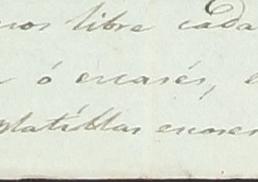 nos libre cada
ó encasés, e
platillas encases